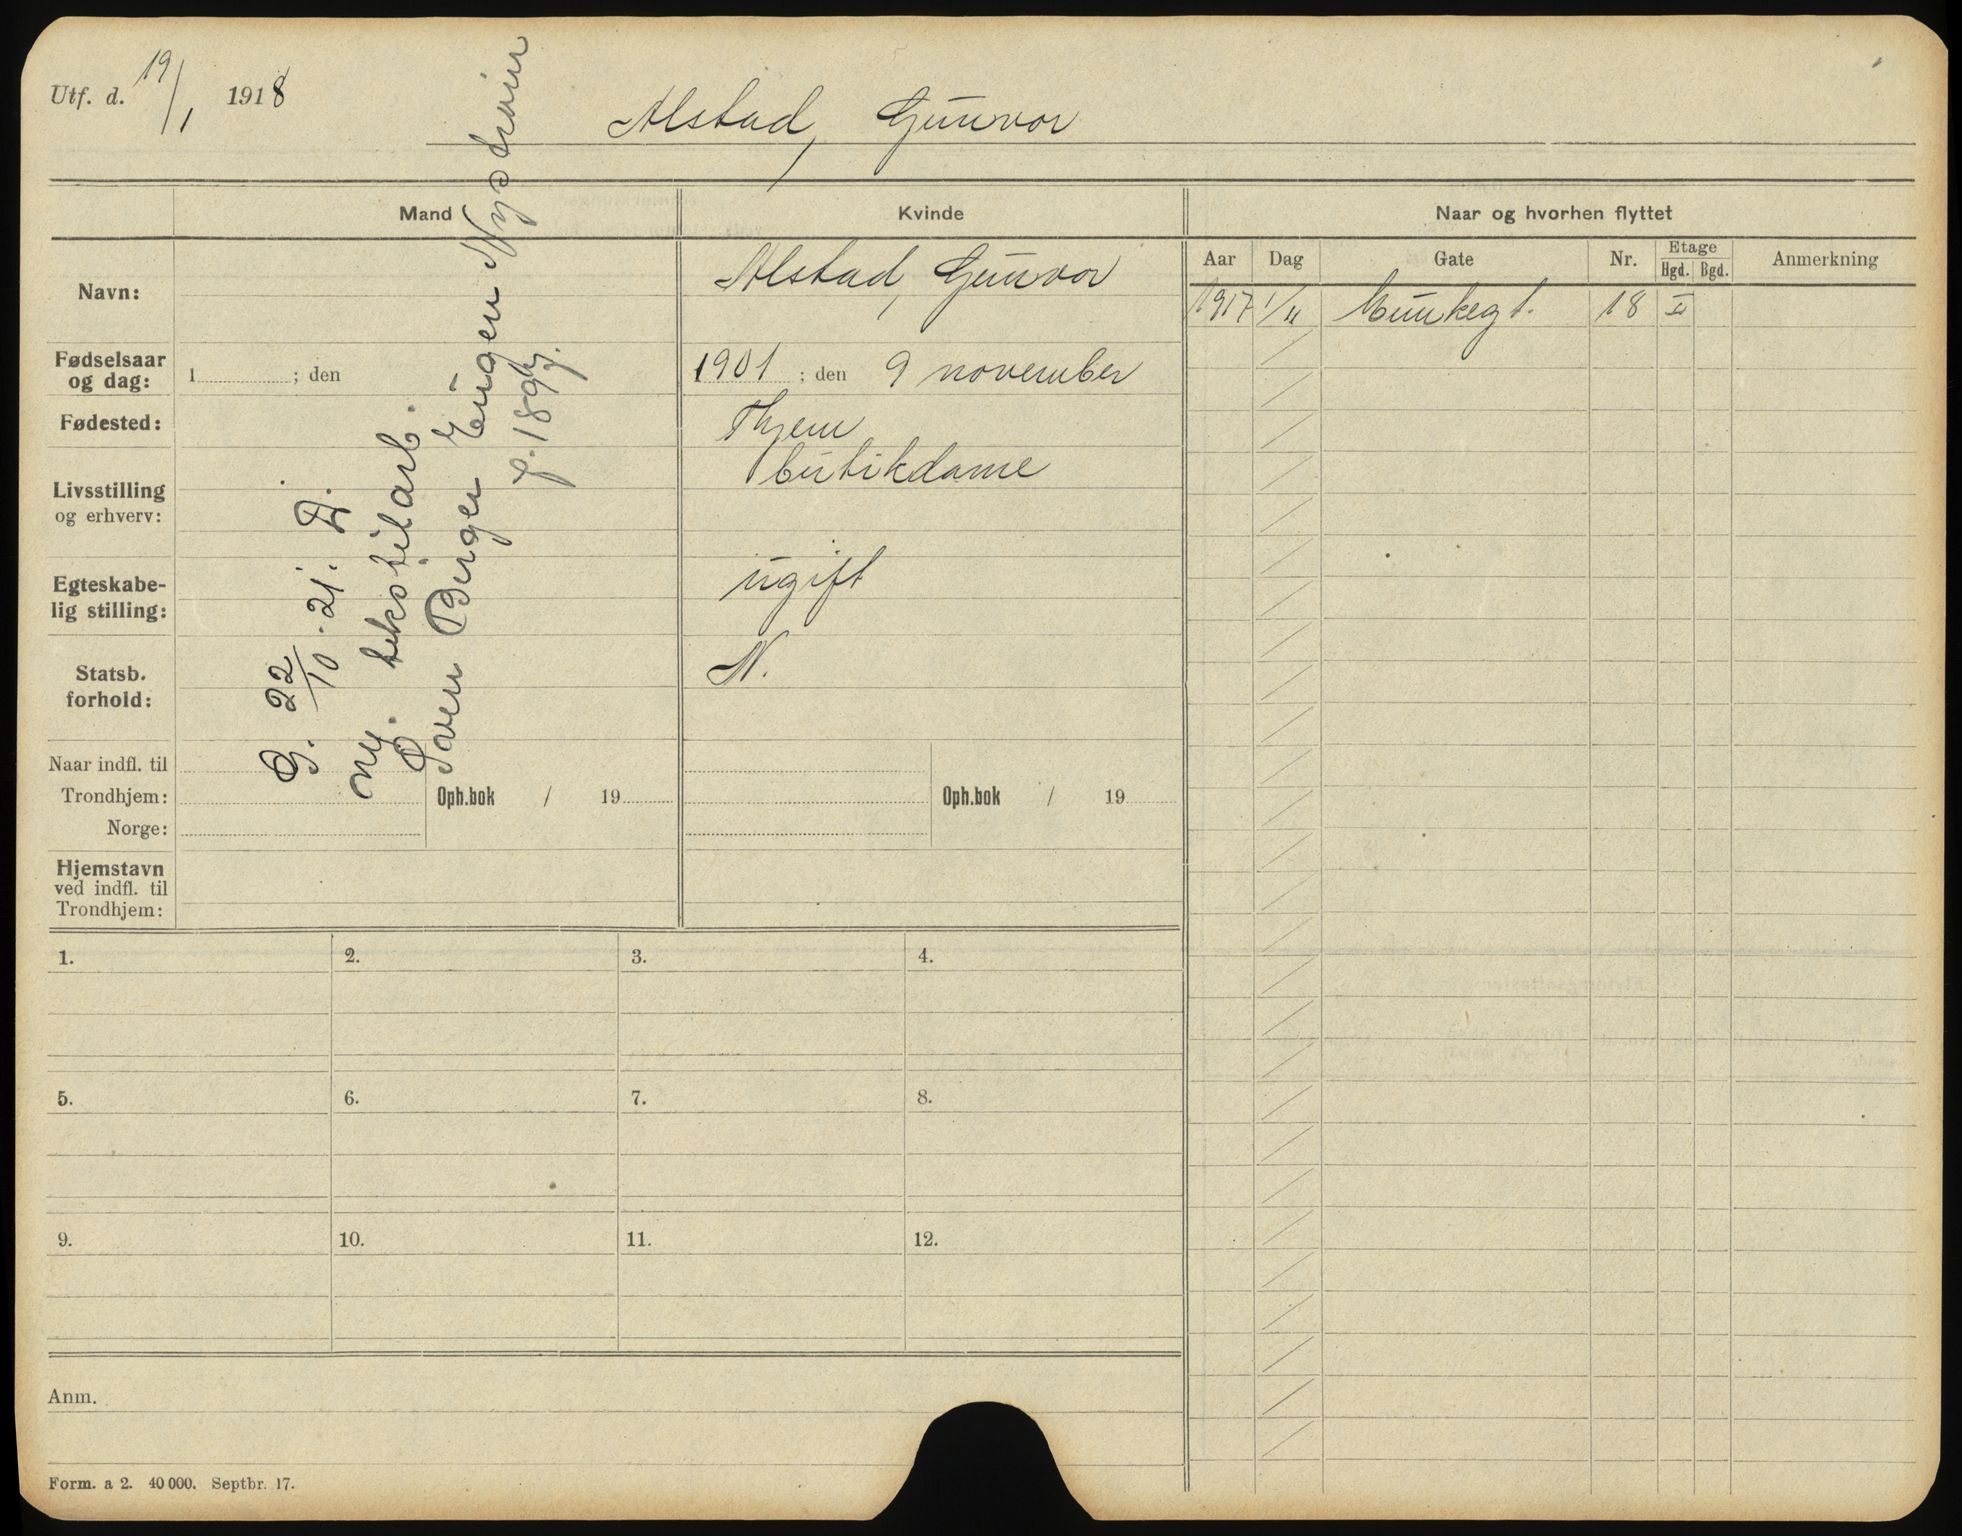 Utf. d. 19/1 1918
Alstad, Gunvor
Mand
Kvinde
Naar og hvorhen flyttet
Navn:
Alstad, Gunvor
Fødselsaar og dag:
1 ; den
1901 ; den 9 november
Fødested:
Thjem
Livsstilling og erhverv:
butikdame
Egteskabe-
lig stilling:
ugift
Statsb.
forhold:
N.
Naar indfl. til
Trondhjem:
Oph.bok / 19
Oph.bok / 19
Norge:
Hjemstavn
ved indfl. til
Trondhjem:
G. 22/10.21.
m.
Sven Birger Eugen Nystrøm
f. 1897.
Aar Dag Gate Nr. Etage Anmerkning
Hgd. Bgd.
1917 1/11 Munkegt. 18 II
1. 2. 3. 4.
5. 6. 7. 8.
9. 10. 11. 12.
Anm.
Form. a 2. 40 000. Septbr. 17.